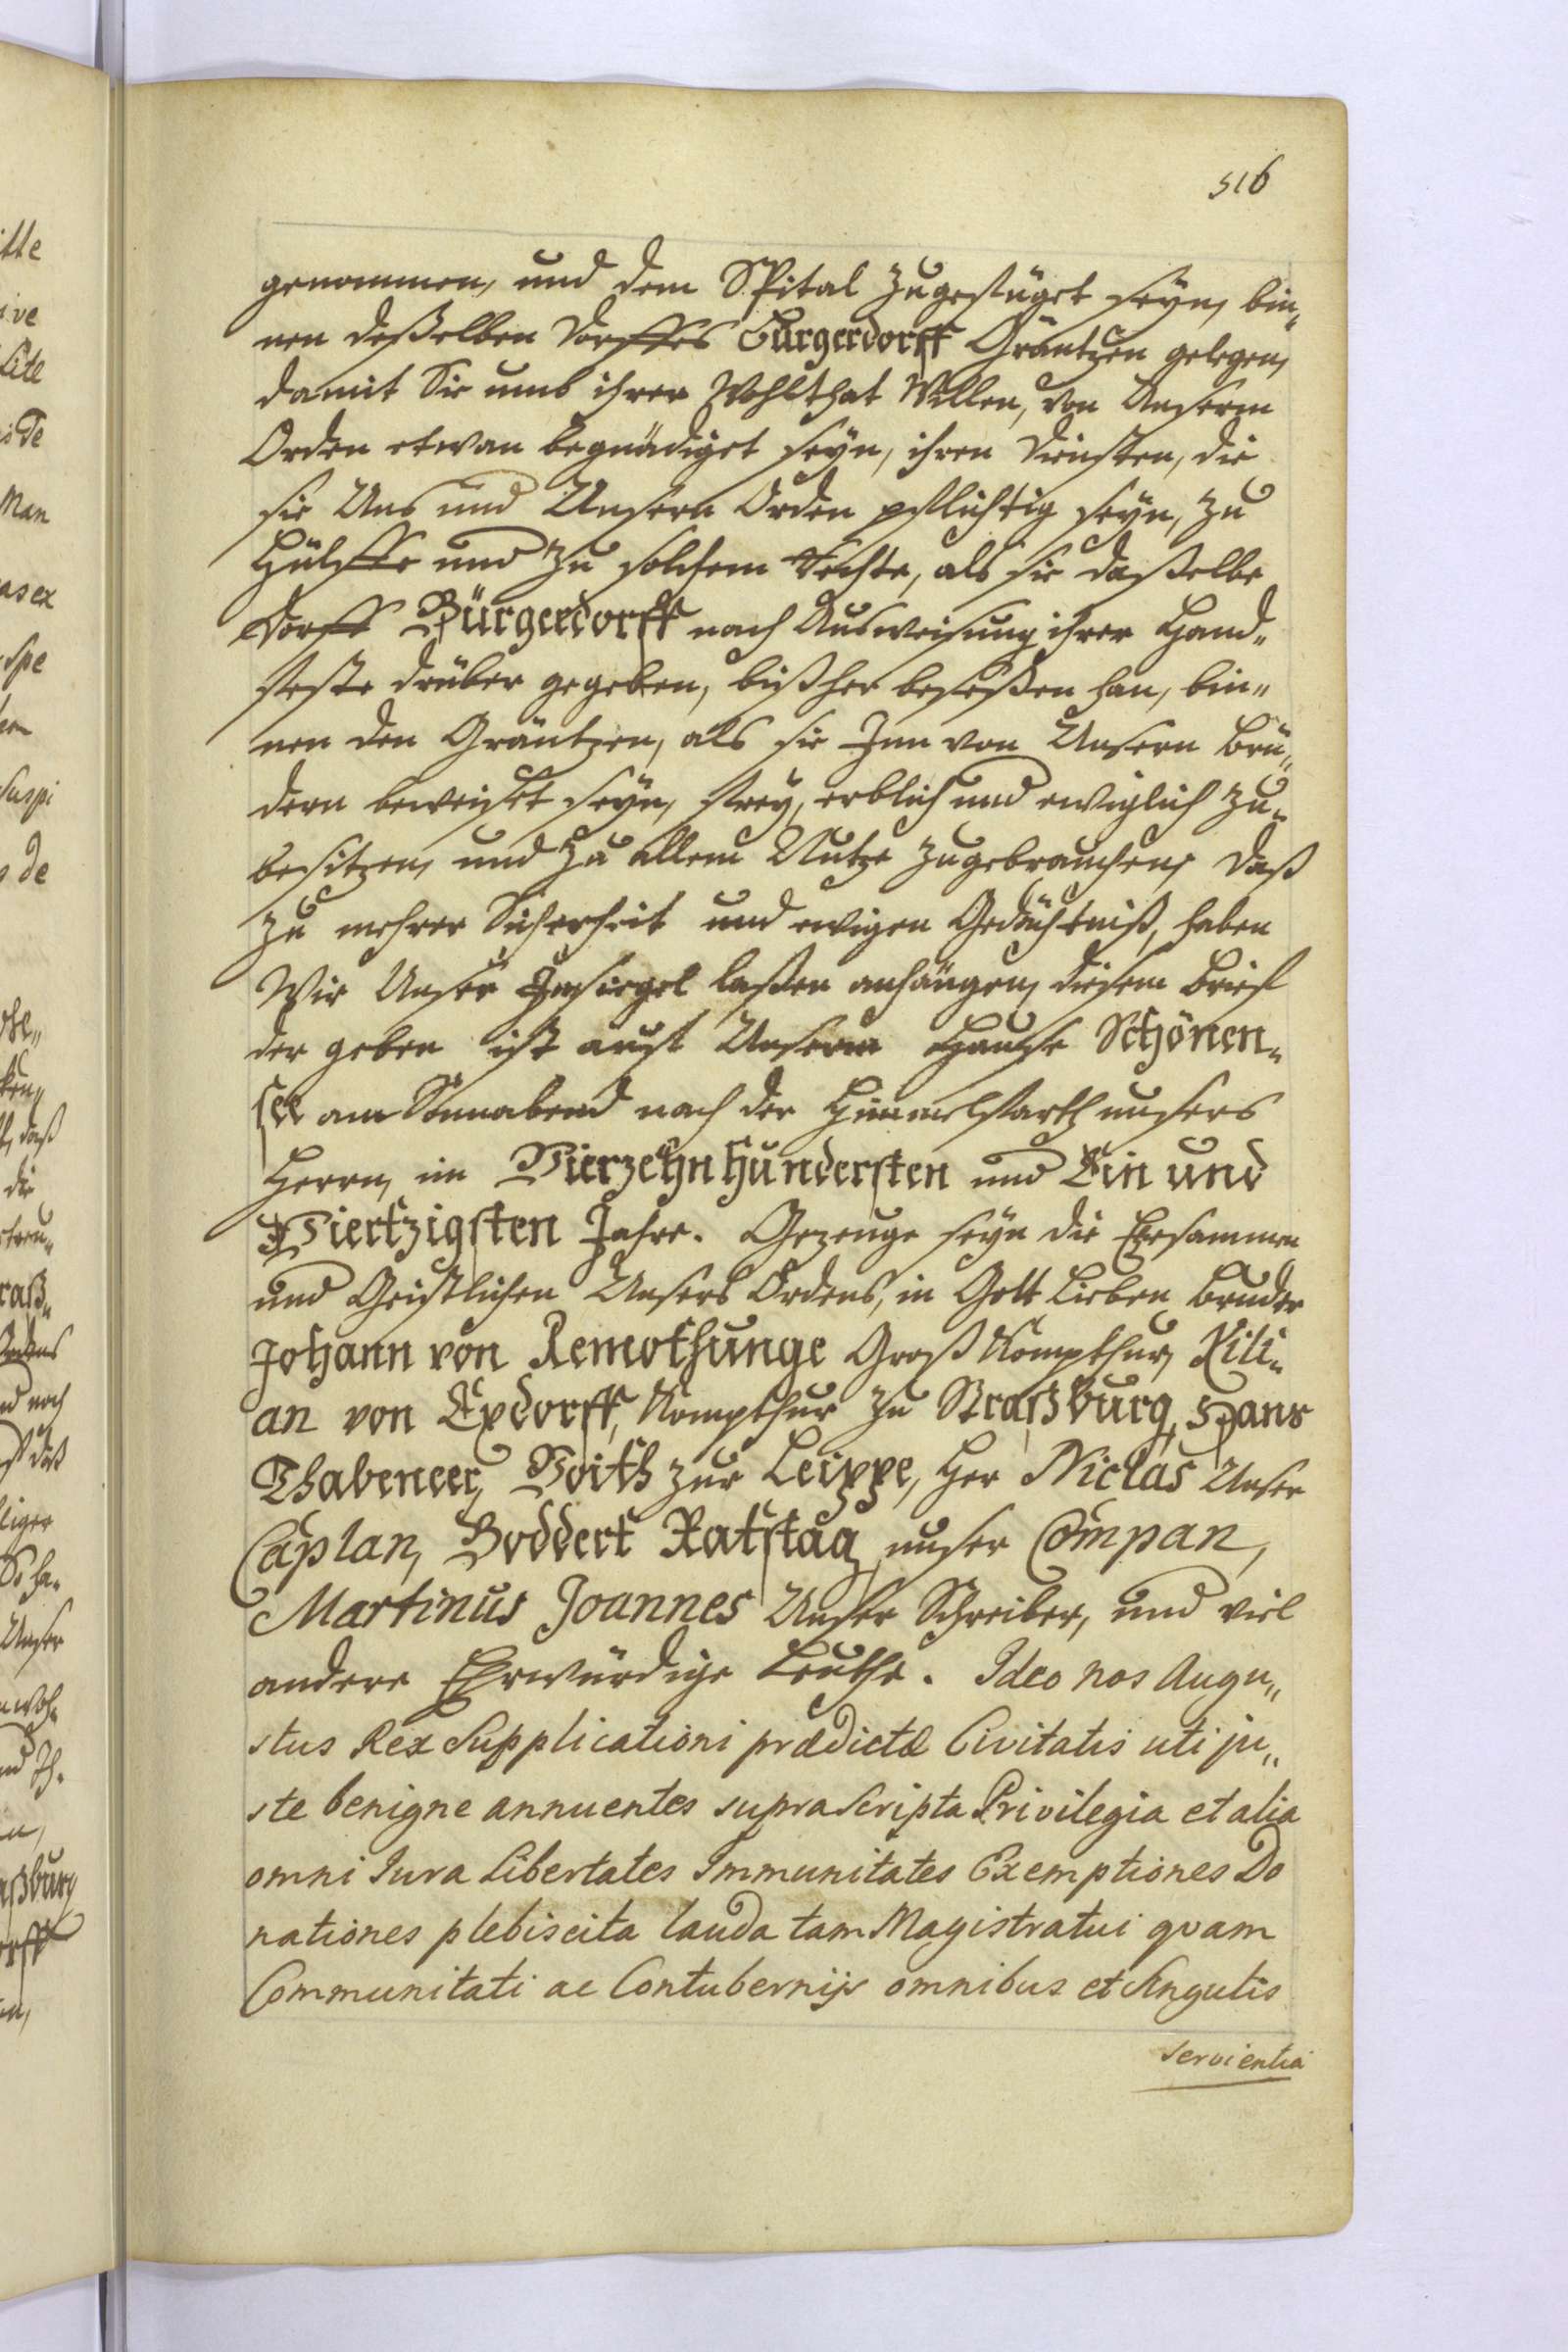 516
genommen, und dem SPital zugefüget seyn, bin„
nen deßelben Dorffes Bürgerdorff Gräntzen gelegen,
damit Sie umb ihrer Wohlthat Willen, von Unserm
Orden etwan begnädiget seyn, ihren Diensten, die
sie Uns und Unsern Orden pflichtig seyn, zu
Hülffe und zu solchem Rechte, als sie daßelbe
Dorff Bürgerdorff nach Ausweisung ihrer Hand„
feste drüber gegeben, bißher beseßen han, bin„
nen den Gräntzen, als sie Inn von Unsern Brü„
dern beweiset seyn, frey, erblich und ewiglich zu„
besitzen, und zu allem Nutze zugebrauchen, daß
zu mehrer Sicherheit und ewigen Gedächtniß, haben
Wir Unser Insiegel laßen anhängen, diesem Brief
der geben ist auf Unserm Hause Schönen„
see am Sonnabend nach der Himmelfarth unsers
Herrn, im Vierzehnhundersten und Ein und
Viertzigsten Jahre. Gezeuge seyn die Ehrsammen
und Geistlichen Unsers Ordens, in Gott Lieben Bruder
Johann von Remothunge Groß Kompthur, Kili„
an von Exdorff, Kompthur zu Straßburg, Hans
Thabeneer, Voith zur Leippe, Her Niclas Unser
Caplan, Boddert Ratstag unser Compan,
Martinus Joannes Unser Schreiber, und viel
andere Ehrwürdige Leuthe. Ideo nos Augu„
stus Rex Supplicationi prædictæ Civitatis uti ju„
ste benigne annuentes suprascripta Privilegia et alia
omni Iura Libertates Immunitates Exemptiones Do
nationes plebiscita lauda tam Magistratui qvam
Communitati ac Contubernijs omnibus et Singulis
servientia